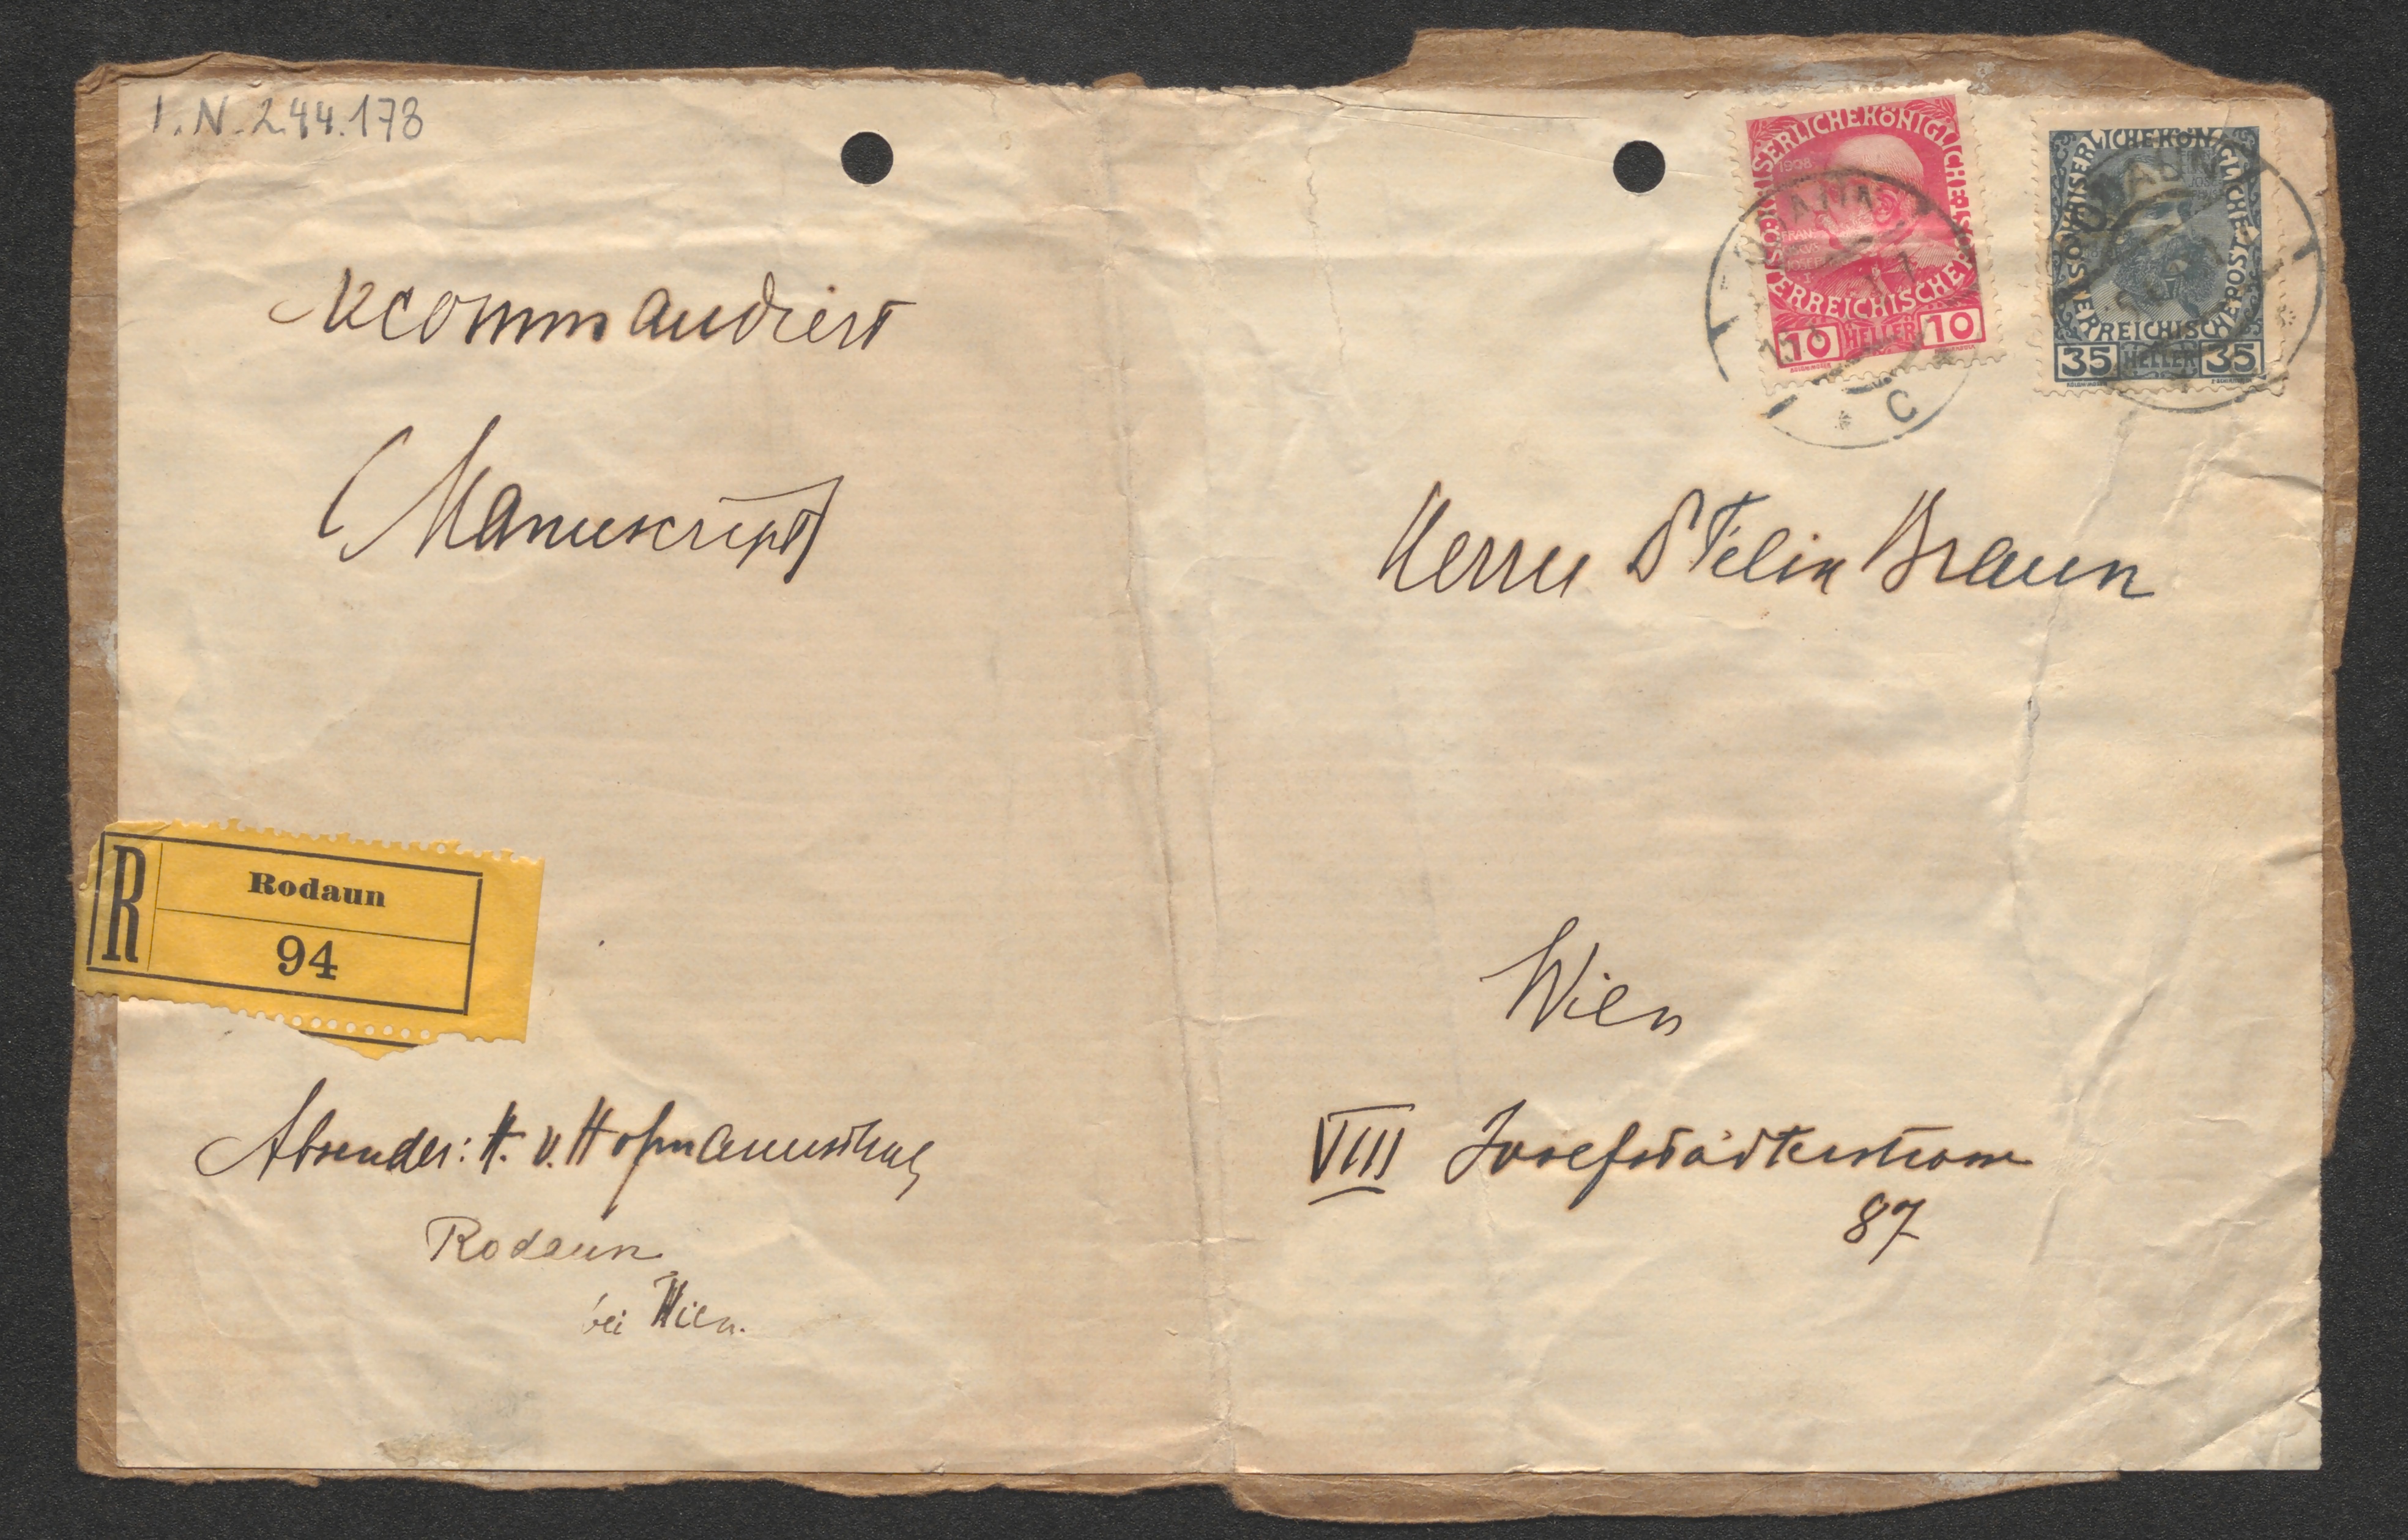 I.N. 244.178
recommandiert
(Manuscript)
R
Rodaun
94
Absender: H. v. Hofmannsthal
Rodaun
bei Wien.
1908
FRANCISCVS JOSEF I
KAISERLICHE KÖNIGLICHE ÖSTERREICHISCHE POST
10 HELLER 10
KAISERLICHE KÖNIGLICHE ÖSTERREICHISCHE POST
35 HELLER 35
RODAUN
C
Herrn Dr Felix Braun
Wien
VIII Josefstädterstrasse
87